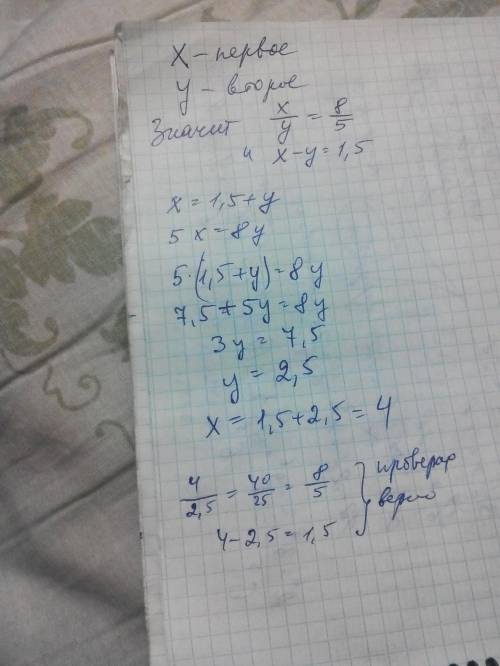 X – первое
y – второе
Значит x/y = 8/5
и x – y = 1,5
x = 1,5 + y
5x = 8y
5·(1,5+y) = 8y
7,5 + 5y = 8y
3y = 7,5
y = 2,5
x = 1,5 + 2,5 = 4
4/2,5 = 40/25 = 8/5
4 – 2,5 = 1,5
} верно